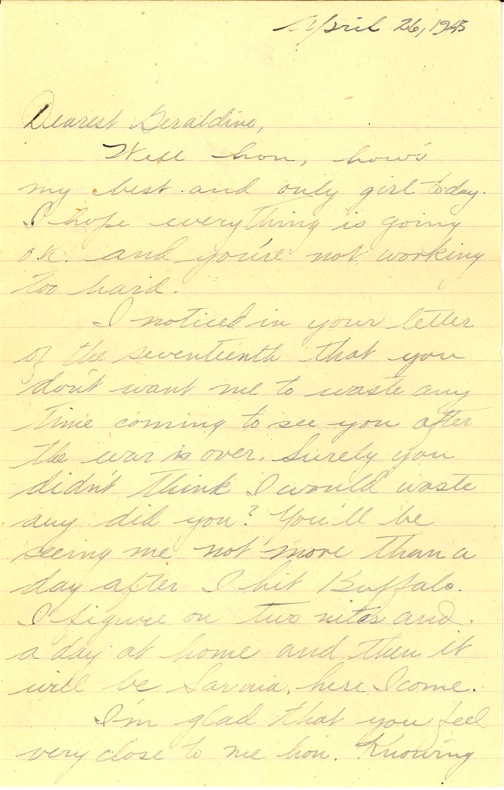 April 26, 1945
Dearest Geraldine,
Well hon, how's
my best and only girl today.
I hope everything is going
o.k. and you're not working
too hard.
I noticed in your letter
of the seventeenth that you
don't want me to waste any
time coming to see you after
the war is over. Surely you
didn't think I would waste
any did you? You'll be
seeing me not more than a
day after I hit Buffalo.
I figure on two nites and
a day at home and then it
will be Sarnia, here I come.
I'm glad that you feel
very close to me hon. Knowing